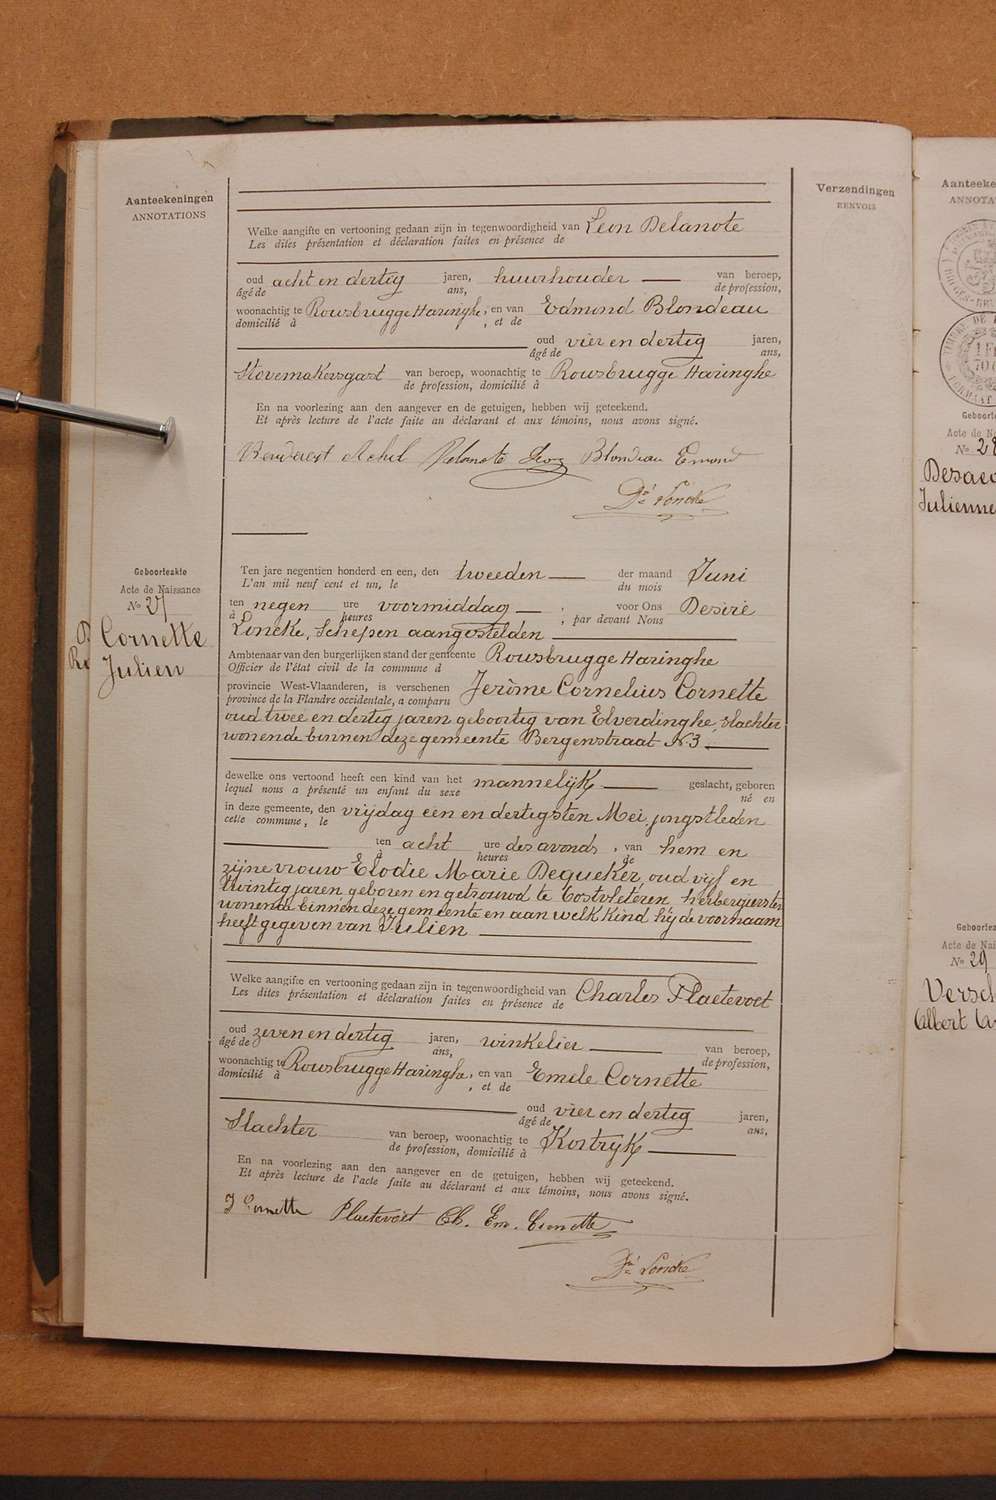 Aanteekeningen
ANNOTATIONS
Verzendingen
RENVOIS
Welke aangifte en vertooning gedaan zijn in tegenwoordigheid van Leon Delanote
Les dites présentation et déclaration faites en présence de
oud acht en dertig jaren, huurhouder van beroep,
âgé de ans, de profession,
woonachtig te Rousbrugge Haringhe, en van Edmond Blondeau
domicilié à , et de
oud vier en dertig jaren,
âgé de ans,
Stovemakersgast van beroep, woonachtig te Rousbrugge Haringhe
de profession, domicilié à
En na voorlezing aan den aangever en de getuigen, hebben wij geteekend.
Et après lecture de l'acte faite au déclarant et aux témoins, nous avons signé.
Achiel Delanote Blondeau Emond
Dé Loncke
Geboorteakte
Acte de Naissance
No 27
Cornette
Julien
Ten jare negentien honderd en een, den tweeden der maand Juni
L'an mil neuf cent et un, le du mois
ten negen ure voormiddag ; voor Ons Desiré
à heures , par devant Nous
Loncke, Schepen aangestelden
Ambtenaar van den burgerlijken stand der gemeente Rousbrugge Haringhe
Officier de l'état civil de la commune d
provincie West-Vlaanderen, is verschenen Jerôme Cornelius Cornette
province de la Flandre occidentale, a comparu
oud twee en dertig jaren geboortig van Elverdinghe, slachter
wonende binnen deze gemeente Bergenstraat N3
dewelke ons vertoond heeft een kind van het mannelijk geslacht, geboren
lequel nous a présenté un enfant du sexe né en
in deze gemeente, den vrijdag een en dertigsten Mei jongstleden
cette commune, le
ten acht ure des avonds, van hem en
à heures de
zijne vrouw Elodie Marie Dequeker oud vijf en
twintig jaren geboren en getrouwd te Oostvleteren, herbergierster
wonende binnen deze gemeente en aan welk kind hij de voornaam
heeft gegeven van Julien
Welke aangifte en vertooning gedaan zijn in tegenwoordigheid van Charles Plaetevoet
Les dites présentation et déclaration faites en présence de
oud zeven en dertig jaren, winkelier van beroep,
âgé de ans, de profession,
woonachtig te Rousbrugge Haringhe, en van Emile Cornette
domicilié à , et de
oud vier en dertig jaren,
âgé de ans,
Slachter van beroep, woonachtig te Kortryk
de profession, domicilié à
En na voorlezing aan den aangever en de getuigen, hebben wij geteekend.
Et après lecture de l'acte faite au déclarant et aux témoins, nous avons signé.
J Cornette Plaetevoet Ch. Em. Cornette
Dé Loncke
Aanteeke
ANNOTA
Geboorte
Acte de Na
No 28
Desae
Julienne
Geboorteak
Acte de Nai
No 29
Versch
Albert